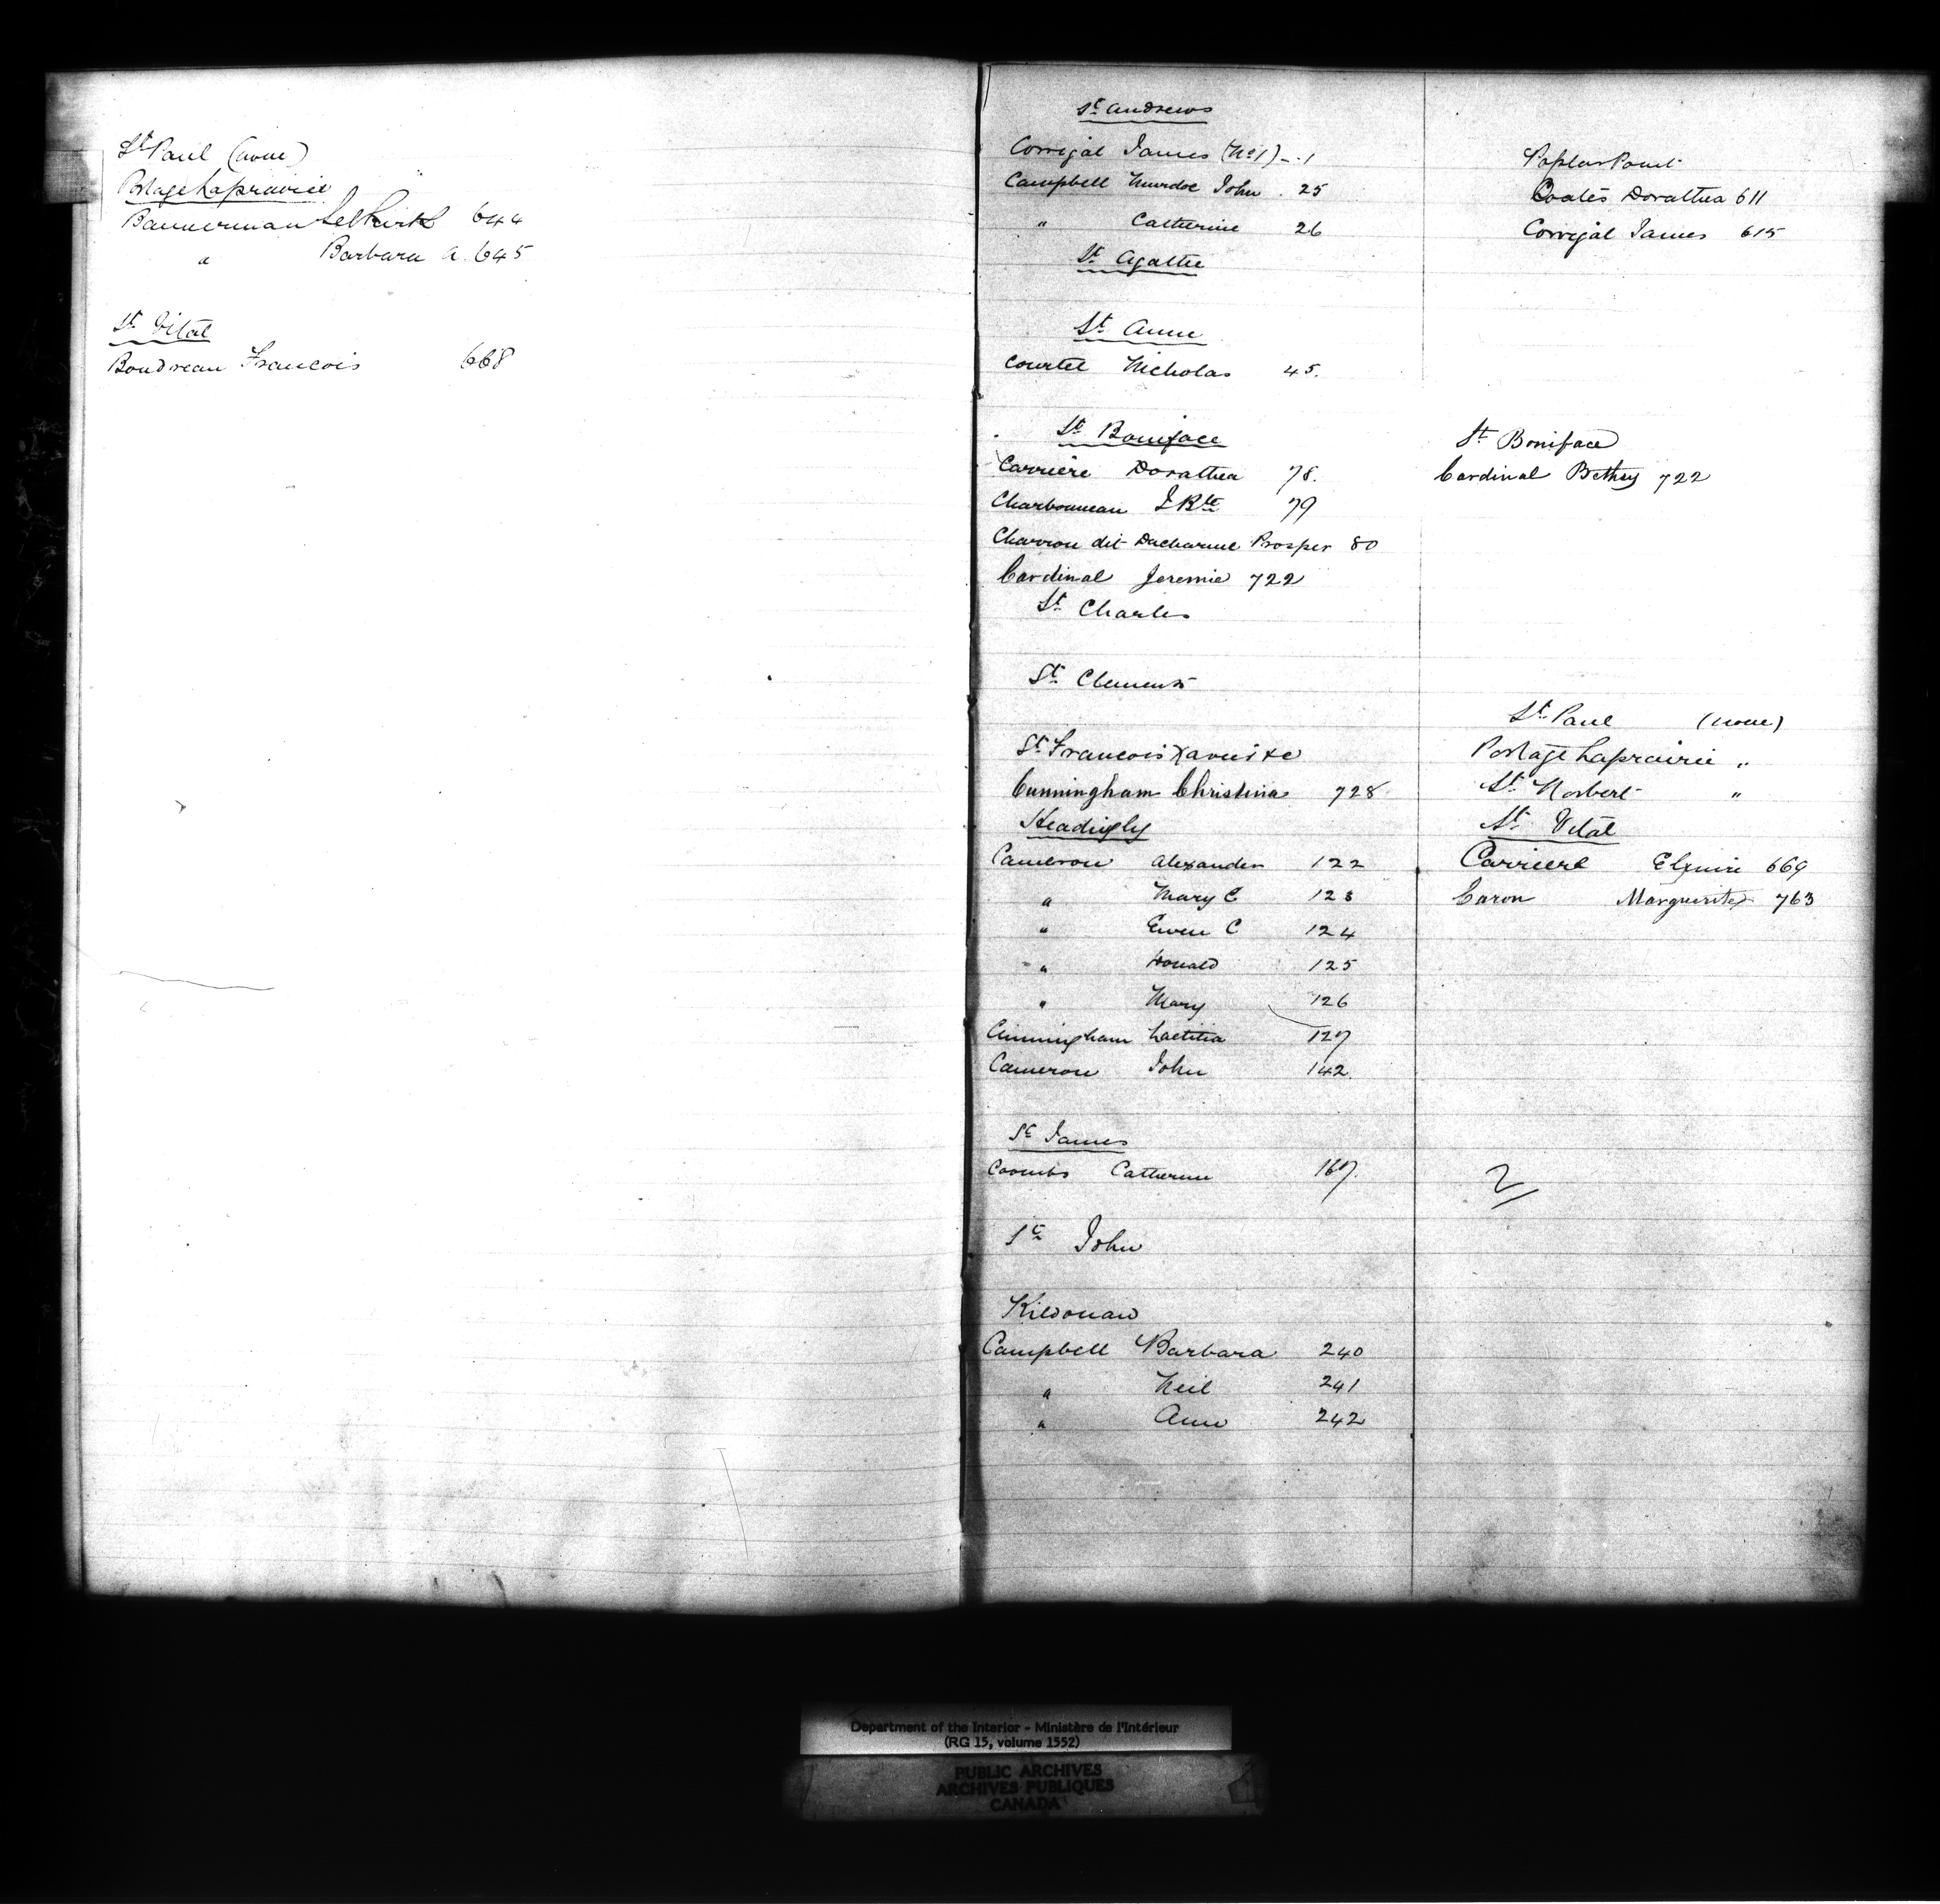 St Paul (none)
Portage Laprairie
Bannerman Selkirk 644
" Barbara A. 645
St Vital
Boudreau Francois 668
St Andrews
Corrigal James (No 1) 1
Campbell Murdoc John . 25
" Catherine 26
St Agathe
St Anne
Courtel Nicholas 45.
St Boniface
Carriere Dorathea 78.
Charbonneau J Bte 79
Charron dit Ducharme Prosper 80
Cardinal Jeremie 722
St Charles
St Clements
St Francois Xavier
Cunningham Christina 728
Headingly
Cameron Alexander 122
" Mary C 123
" Ewen C 124
" Donald 125
" Mary 126
Cunningham Laetitia 127
Cameron John 142.
St James
Coombs Catherine 167.
St John
Kildonan
Campbell Barbara 240
" Neil 241
" Ann 242
Poplar Point
Coates Dorathea 611
Corrigal James 615
St Boniface
Cardinal Bethsy 722
St Paul (none)
Portage Laprairie "
St Norbert "
St Vital
Carriere Elzuire 669
Caron Marguerite 763
2
Department of the Interior - Ministère de l'Intérieur
(RG 15, volume 1552)
PUBLIC ARCHIVES
ARCHIVES PUBLIQUES
CANADA